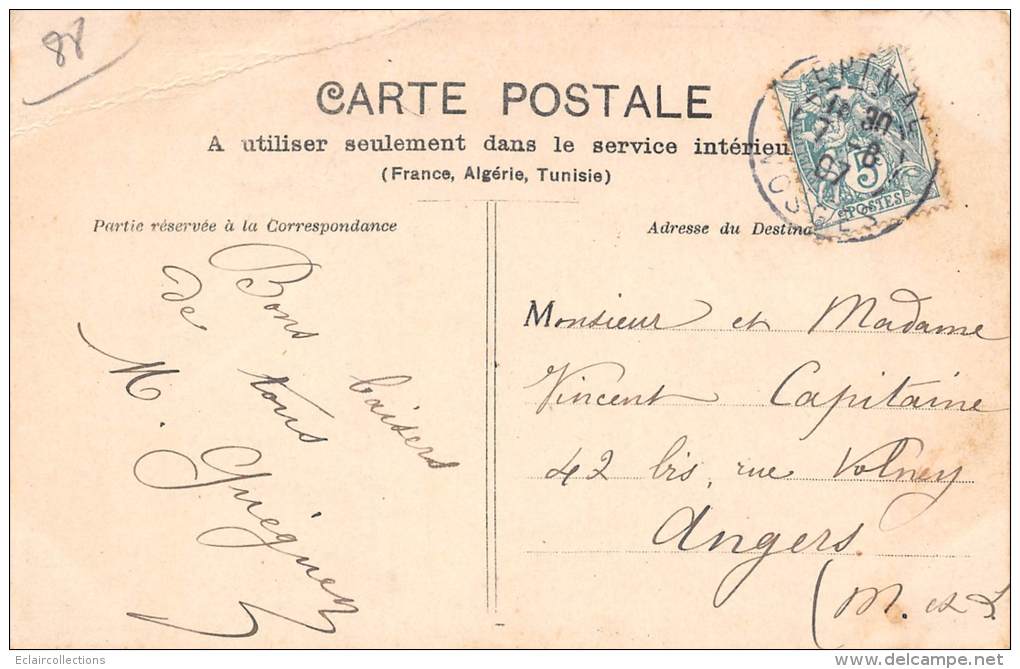 88
CARTE POSTALE
A utiliser seulement dans le service intérieu
(France, Algérie, Tunisie)
EPINAL
18 30
7 - 8
07
VOSGES
5
POSTES
Partie réservée à la Correspondance
Adresse du Destina
Bons baisers
de tous
M. Guéguen
Monsieur et Madame
Vincent Capitaine
42 bis, rue Volney
Angers
(M. et L
Eclaircollections
delcampe.net